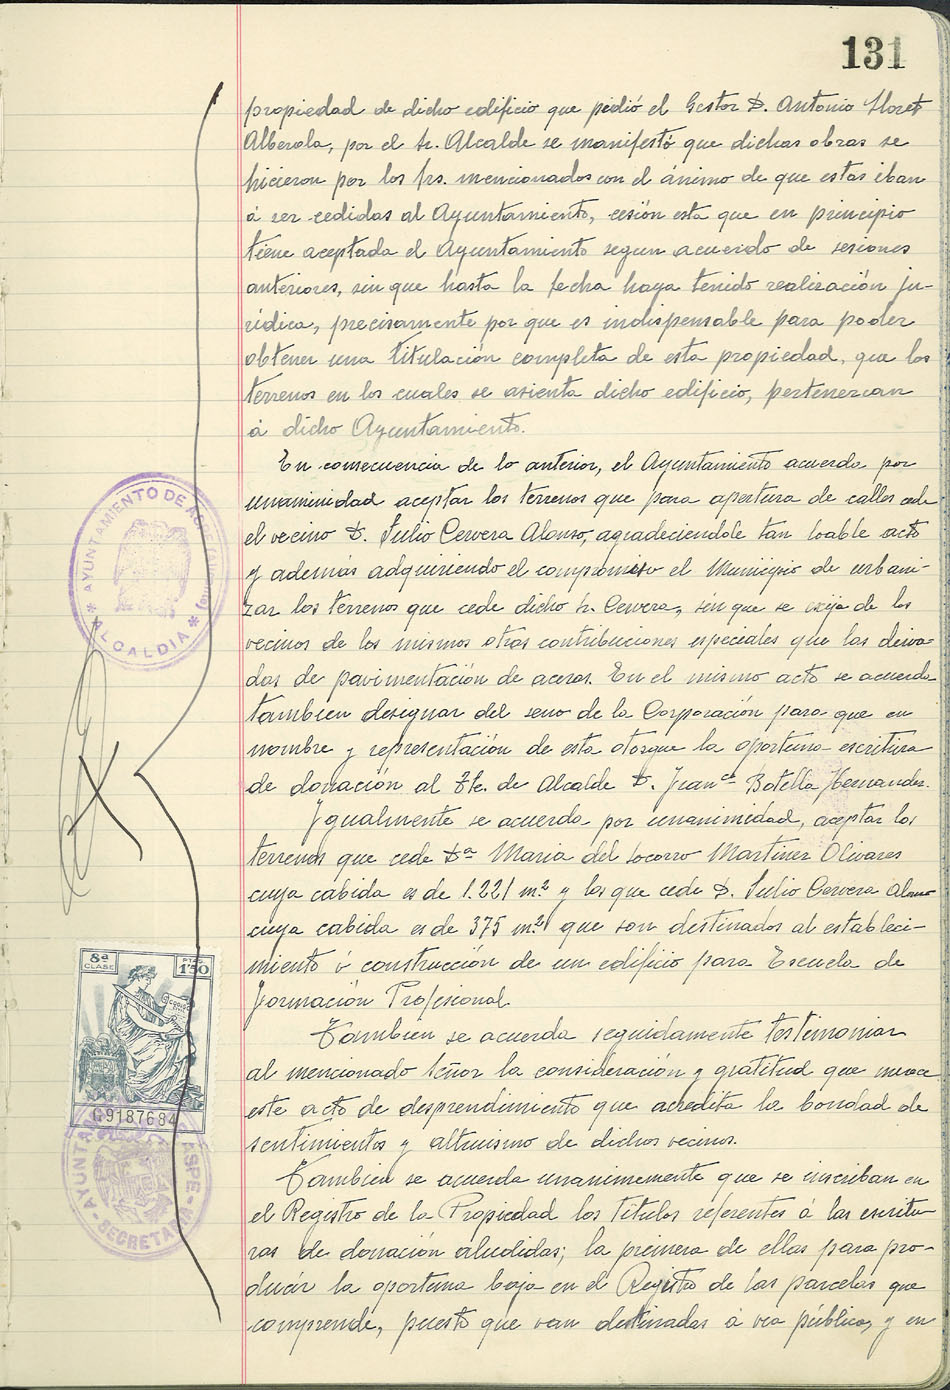 131
propiedad de dicho edificio que pidió el Gestor D. Antonio Lloret
Alberola, por el Sr. Alcalde se manifestó que dichas obras se
hicieron por los Srs. mencionados con el ánimo de que estas iban
á ser cedidas al Ayuntamiento, cesión esta que en principio
tiene aceptada el Ayuntamiento segun acuerdo de sesiones
anteriores, sin que hasta la fecha haya tenido realización ju-
rídica, precisamente por que es indispensable para poder
obtener una titulación completa de esta propiedad, que los
terrenos en los cuales se asienta dicho edificio, pertenezcan
á dicho Ayuntamiento.
En consecuencia de lo anterior, el Ayuntamiento acuerda por
unanimidad aceptar los terrenos que para apertura de calles cede
el vecino D. Julio Cervera Alonso, agradeciendole tan loable acto
y además adquiriendo el compromiso el Municipio de urbani-
zar los terrenos que cede dicho Sr. Cervera, sin que se exija de los
vecinos de los mismos otras contribuciones especiales que las deriva-
das de pavimentación de aceras. En el mismo acto se acuerda
tambien designar del seno de la Corporación para que en
nombre y representación de esta otorgue la oportuna escritura
de donación al Tte. de Alcalde D. Franco Botella Hernandez.
Igualmente se acuerda por unanimidad, aceptar los
terrenos que cede Da Maria del Socorro Martinez Olivares
cuya cabida es de 1.221 m.2 y los que cede D. Julio Cervera Alonso
cuya cabida es de 375 m.2 que son destinados al estableci-
miento ó construcción de un edificio para Escuela de
Formación Profesional
Tambien se acuerda seguidamente testimoniar
al mencionado Señor la consideración y gratitud que merece
este acto de desprendimiento que acredita la bondad de
sentimientos y altruismo de dichos vecinos.
Tambien se acuerda unanimemente que se inscriban en
el Registro de la Propiedad los títulos referentes á las escritu-
ras de donación aludidas; la primera de ellas para pro-
ducir la oportuna baja en el Registro de las parcelas que
comprende, puesto que van destinadas á via pública, y en
AYUNTAMIENTO DE
ALCALDIA
8ª CLASE
PTAS. 1'50
G9187684
AYUNTAM
ASPE
SECRETARIA